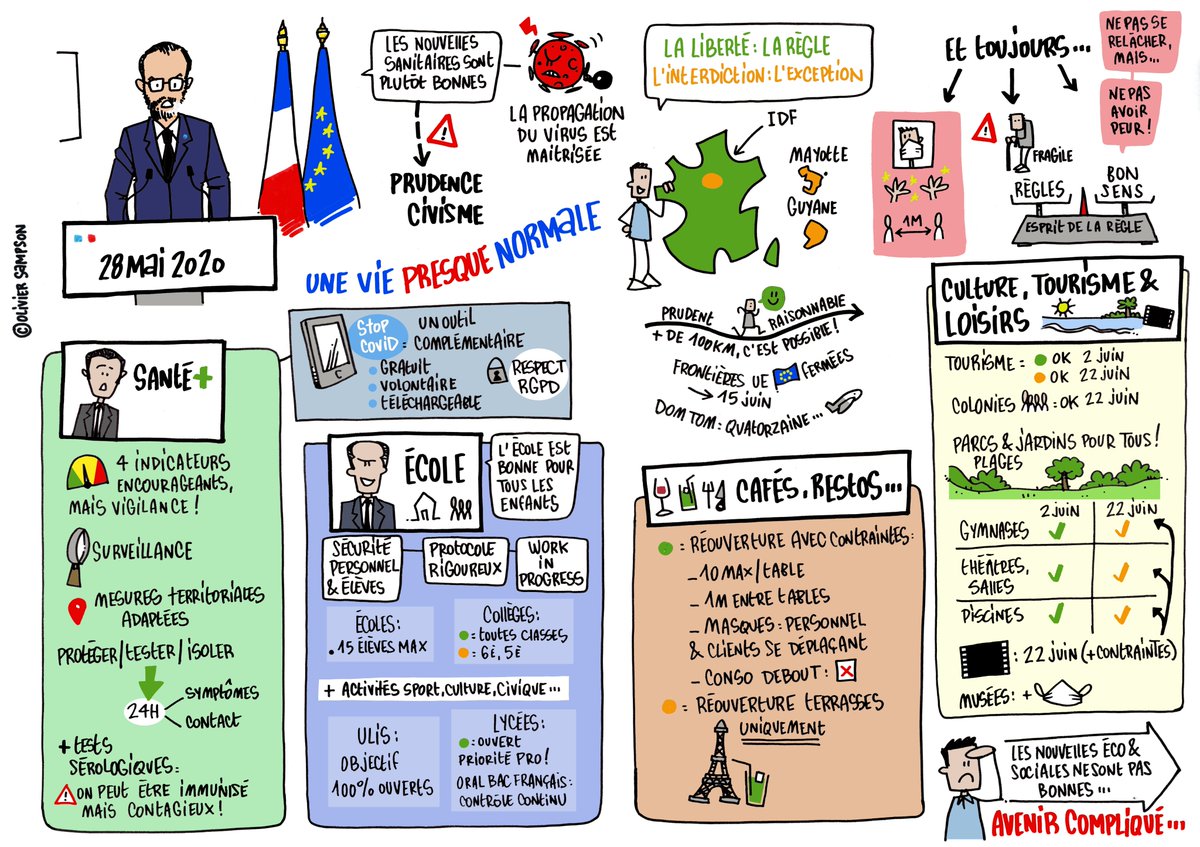 28 MAI 2020
©OLIVIER SAMPSON
LES NOUVELLES
SANITAIRES SONT
PLUTÔT BONNES
PRUDENCE
CIVISME
LA PROPAGATION
DU VIRUS EST
MAITRISÉE
UNE VIE PRESQUE NORMALE
LA LIBERTÉ : LA RÈGLE
L'INTERDICTION : L'EXCEPTION
IDF
MAYOTTE
GUYANE
PRUDENT
RAISONNABLE
+ DE 100KM, C'EST POSSIBLE !
FRONTIÈRES UE FERMÉES
→ 15 JUIN
DOM TOM : QUATORZAINE...
ET TOUJOURS...
NE PAS SE
RELÂCHER,
MAIS...
NE PAS
AVOIR
PEUR !
1M
FRAGILE
RÈGLES
BON
SENS
ESPRIT DE LA RÈGLE
SANTÉ+
4 INDICATEURS
ENCOURAGEANTS,
MAIS VIGILANCE !
SURVEILLANCE
MESURES TERRITORIALES
ADAPTÉES
PROTÉGER/TESTER/ISOLER
24H
SYMPTÔMES
CONTACT
+ TESTS
SÉROLOGIQUES :
ON PEUT ÊTRE IMMUNISÉ
MAIS CONTAGIEUX !
STOP
COVID
: UN OUTIL
COMPLÉMENTAIRE
GRATUIT
VOLONTAIRE
TÉLÉCHARGEABLE
RESPECT
RGPD
ÉCOLE
L'ÉCOLE EST
BONNE POUR
TOUS LES
ENFANTS
SÉCURITÉ
PERSONNEL
& ÉLÈVES
PROTOCOLE
RIGOUREUX
WORK
IN
PROGRESS
ÉCOLES :
. 15 ÉLÈVES MAX
COLLÈGES :
= TOUTES CLASSES
= 6È, 5È
+ ACTIVITÉS SPORT, CULTURE, CIVIQUE...
ULIS :
OBJECTIF
100% OUVERTS
LYCÉES :
: OUVERT
PRIORITÉ PRO !
ORAL BAC FRANÇAIS :
CONTRÔLE CONTINU
CAFÉS, RESTOS...
= RÉOUVERTURE AVEC CONTRAINTES :
_ 10 MAX/TABLE
_ 1M ENTRE TABLES
_ MASQUES : PERSONNEL
& CLIENTS SE DÉPLAÇANT
_ CONSO DEBOUT :
= RÉOUVERTURE TERRASSES
UNIQUEMENT
CULTURE, TOURISME &
LOISIRS
TOURISME : OK 2 JUIN
OK 22 JUIN
COLONIES : OK 22 JUIN
PARCS & JARDINS POUR TOUS !
PLAGES
2 JUIN
22 JUIN
GYMNASES
THÉÂTRES,
SALLES
PISCINES
: 22 JUIN (+CONTRAINTES)
MUSÉES : +
LES NOUVELLES ÉCO &
SOCIALES NE SONT PAS
BONNES ...
AVENIR COMPLIQUÉ...